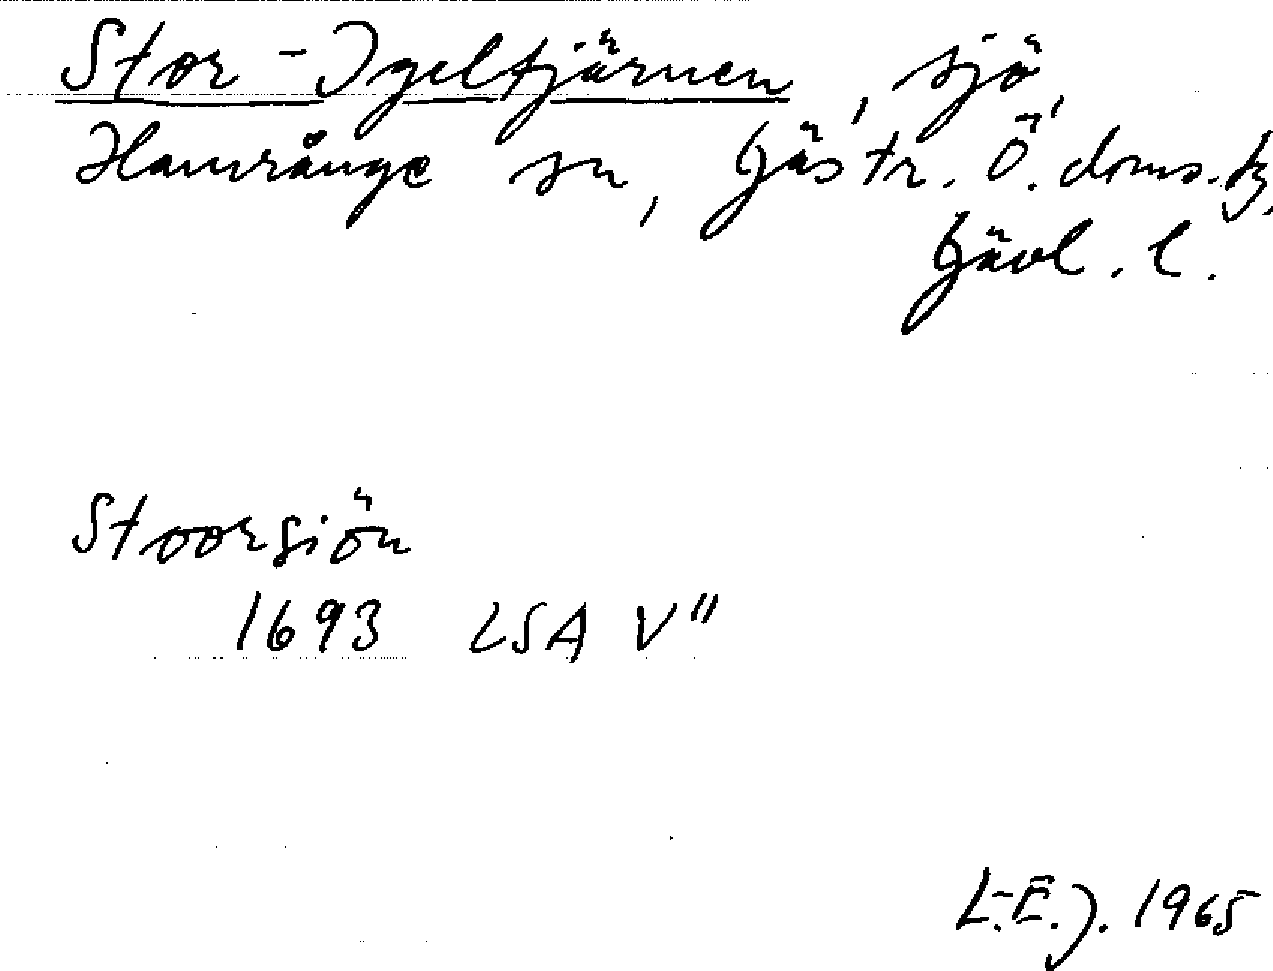 Stor-Igeltjärnen, sjö,
Hamrånge sn, Gästr. Ö. doms.
Gävl. l.
Stoorsiön
1693 LSA V"
L-E.J. 1965